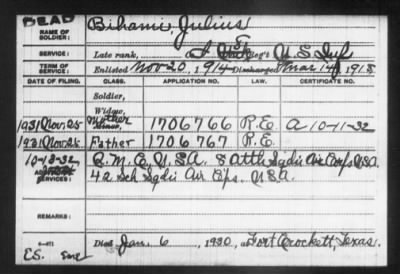 DEAD
NAME OF SOLDIER: Bihami, Julius
SERVICE: Late rank, Reg't U.S. Inf
TERM OF SERVICE: Enlisted Nov 20, 1914 Discharged Mar 14, 1918
DATE OF FILING. CLASS. APPLICATION NO. LAW. CERTIFICATE NO.
Soldier,
Widow,
1931 Nov. 25 Mother Minor, 1706766 R.E. A 10-11-32
1931 Nov. 25 Father 1706767 R.E.
10-13-32 Q.M.C. U.S.A. 8 Attk Sqdn Air Corps, U.S.A.
SERVICES: 42 Sch Sqdn Air Cps. U.S.A.
REMARKS:
Died Jan. 6, 1930, at Fort Crockett, Texas.
ES.